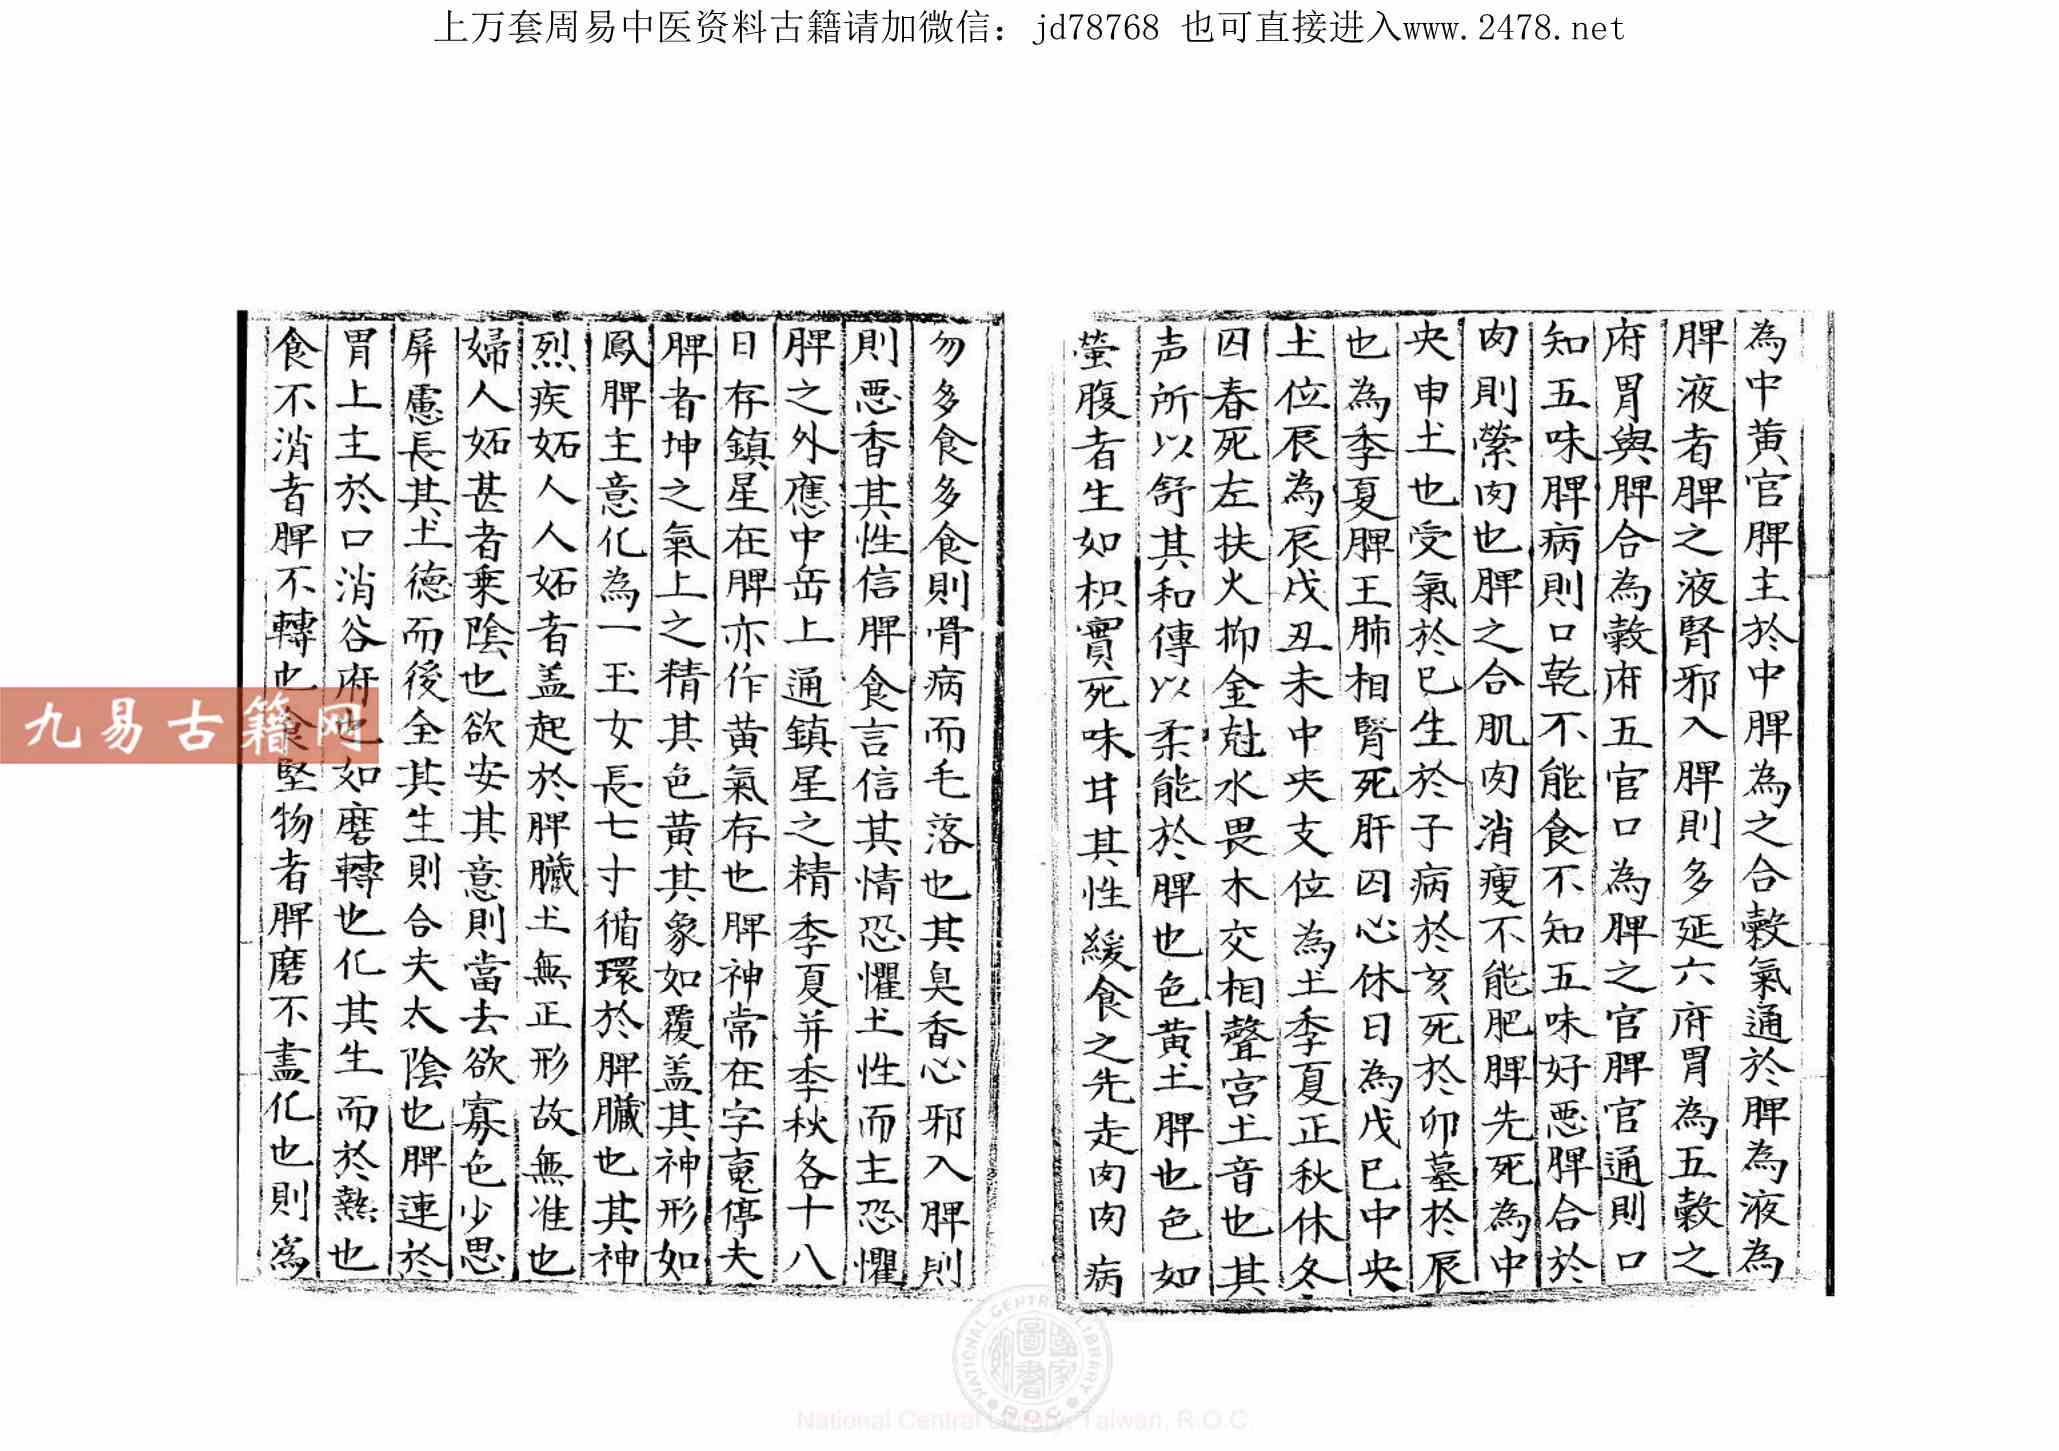 上万套周易中医资料古籍请加微信：jd78768 也可直接进入www.2478.net
為中黄官脾主於中脾為之合穀氣通於脾為液為
脾液者脾之液腎邪入脾則多延六府胃為五穀之
府胃與脾合為穀府五官口為脾之官脾官通則口
知五味脾病則口乾不能食不知五味好悪脾合於
肉則縈肉也脾之合肌肉消瘦不能肥脾先死為中
央申土也受氣於巳生於子病於亥死於卯墓於辰
也為季夏脾王肺相腎死肝囚心休日為戊巳中央
土位辰為辰戌丑未中央支位為土季夏正秋休冬
囚春死左扶火抑金尅水畏木交相聲宫土音也其
声所以舒其和傳以柔能於脾也色黄土脾也色如
螢腹者生如枳實死味甘其性緩食之先走肉肉病
勿多食多食則骨病而毛落也其臭香心邪入脾則
則悪香其性信脾食言信其情恐懼土性而主恐懼
脾之外應中岳上通鎮星之精季夏并季秋各十八
日存鎮星在脾亦作黄氣存也脾神常在字㝠停夫
脾者坤之氣上之精其色黄其象如覆盖其神形如
鳳脾主意化為一玉女長七寸循環於脾臓也其神
烈疾妬人人妬者盖起於脾臓土無正形故無准也
婦人妬甚者乗陰也欲安其意則當去欲寡色少思
屏慮長其土德而後全其生則合夫太陰也脾連於
胃上主於口消谷府也如磨轉也化其生而於熱也
食不消者脾不轉也食堅物者脾磨不盡化也則為
九易古籍网
NATIONAL CENTRAL LIBRARY
R.O.C
國家圖書館
National Central Library, Taiwan, R.O.C